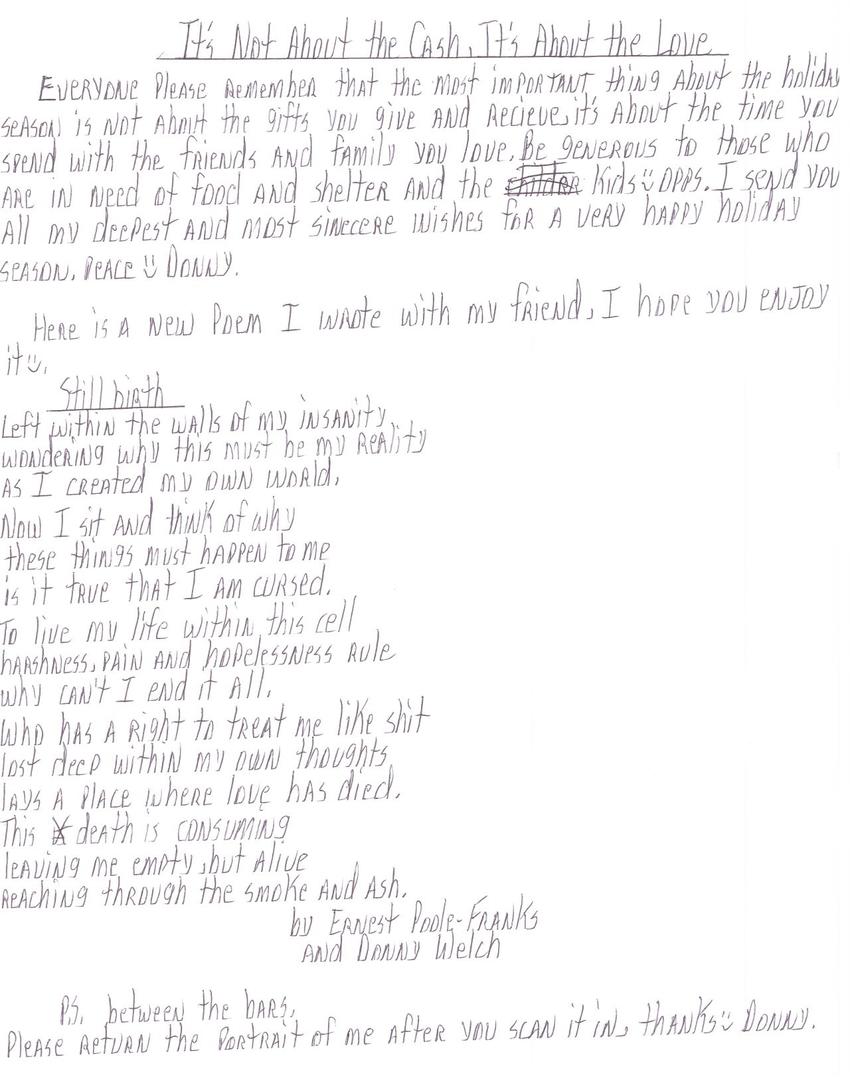 It's Not About the Cash, It's About the Love
Everyone Please Remember that the most important thing About the holiday
season is not about the gifts you give and recieve, it's about the time you
spend with the friends and family you love. Be generous to those who
are in need of food and shelter and the Kids :) opps. I send you
All my deepest and most sincere wishes for a very happy holiday
season. Peace :) Donny.
Here is a new Poem I wrote with my friend, I hope you enjoy
it :).
Still birth
Left within the walls of my insanity
wondering why this must be my reality
as I created my own world.
Now I sit and think of why
these things must happen to me
is it true that I am cursed.
To live my life within this cell
harshness, pain and hopelessness rule
why can't I end it all.
Who has a right to treat me like shit
lost deep within my own thoughts
lays a place where love has died.
This death is consuming
leaving me empty, but alive
reaching through the smoke and ash.
by Ernest Poole-Franks
and Donny Welch
P.S. between the bars,
Please return the portrait of me after you scan it in, thanks :) Donny.